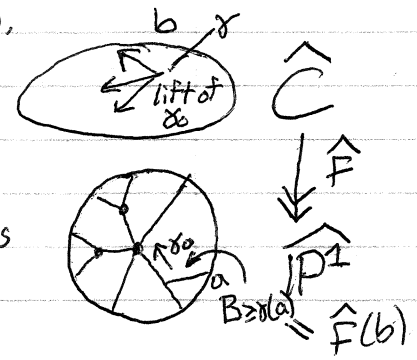 b γ
lift of
γ₀
Ĉ
F̂
s
γ₀
a
P̂¹
B≥γ(a)
F̂(b)